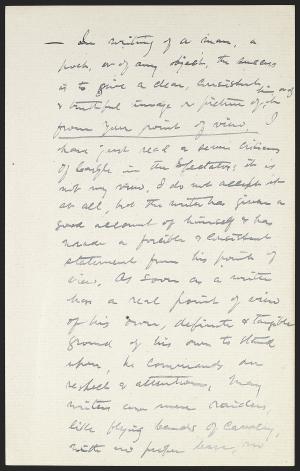 — In writing of a man, a
poet, or of any object, the success
is to give a clear, consistent
& truthful image or picture of him or of it
from your point of view. I
have just read a severe criticism
of Carlyle in the Spectator; it is
not my view, I do not accept it
at all, but the writer has given a
good account of himself & has
made a forcible & consistent
statement from his point of
view. As soon as a writer
has a real point of view
of his own, definite & tangible
ground of his own to stand
upon, he commands our
respect & attention. Many
writers are mere raiders,
like flying bands of cavalry,
with no proper base, no